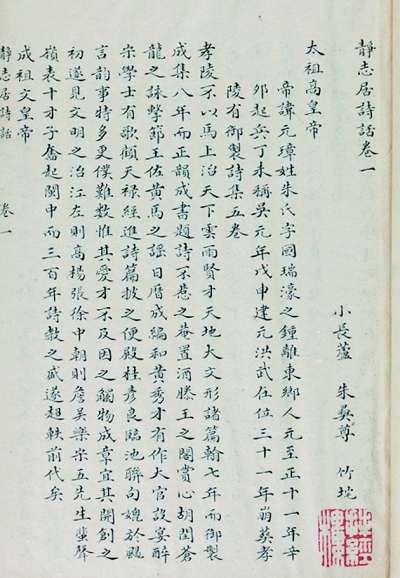 靜志居詩話卷一
小長蘆 朱彝尊 竹垞
太祖高皇帝
帝諱元璋姓朱氏字國瑞濠之鍾離東鄉人元至正十一年辛
卯起兵丁未稱吳元年戊申建元洪武在位三十一年崩葬孝
陵有御製詩集五卷
孝陵不以馬上治天下雲雨賢才天地大文形諸篇翰七年而御製
成集八年而正韻成書題詩不惹之菴置酒滕王之閣賞心胡閏蒼
龍之詠擊節王佐黃馬之謠日曆成編和黃秀才有作大官設宴醉
宋學士有歌傾天祿經進詩篇披之便殿桂彥良臨池聯句媲於颺
言韵事特多更僕難數惟其愛才不及因之觸物成章宜其開創之
初遂見文明之治江左則高楊張徐中朝則詹吳樂宋五先生蜚聲
嶺表十才子奮起閩中而三百年詩教之盛遂超軼前代矣
成祖文皇帝
靜志居詩話 卷一